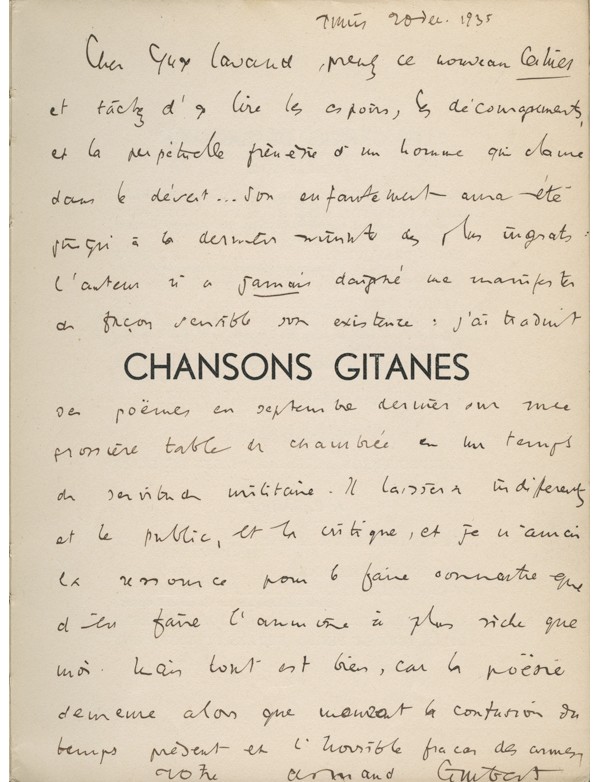 Tunis 20 dec. 1935
Cher Guy Lavaud, prenez ce nouveau Cahier
et tâchez d'y lire les espoirs, les découragements,
et la perpétuelle frénésie d'un homme qui clame
dans le désert... Son enfantement aura été
jusqu'à la dernière minute des plus ingrats :
l'auteur n'a jamais daigné me manifester
de façon sensible son existence : j'ai traduit
CHANSONS GITANES
ses poëmes en septembre dernier sur une
grossière table de chambrée en un temps
de servitude militaire. Il laissera indifférents
et le public, et la critique, et je n'aurai
la ressource pour le faire connaître que
d'en faire l'aumône à plus riche que
moi. Mais tout est bien, car la poësie
demeure alors que meurent la confusion du
temps présent et l'horrible fracas des armes,
votre Armand Guibert